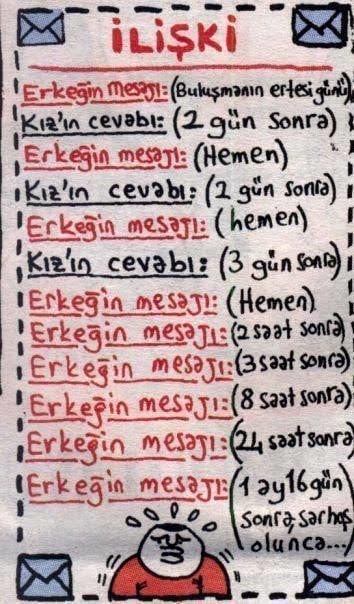 İLİŞKİ
Erkeğin mesajı: (Buluşmanın ertesi günü)
Kız'ın cevabı: (2 gün sonra)
Erkeğin mesajı: (Hemen)
Kız'ın cevabı: (2 gün sonra)
Erkeğin mesajı: (hemen)
Kız'ın cevabı: (3 gün sonra)
Erkeğin mesajı: (Hemen)
Erkeğin mesajı: (2 saat sonra)
Erkeğin mesajı: (3 saat sonra)
Erkeğin mesajı: (8 saat sonra)
Erkeğin mesajı: (24 saat sonra)
Erkeğin mesajı: (1 ay 16 gün
sonra, sarhoş
olunca...)